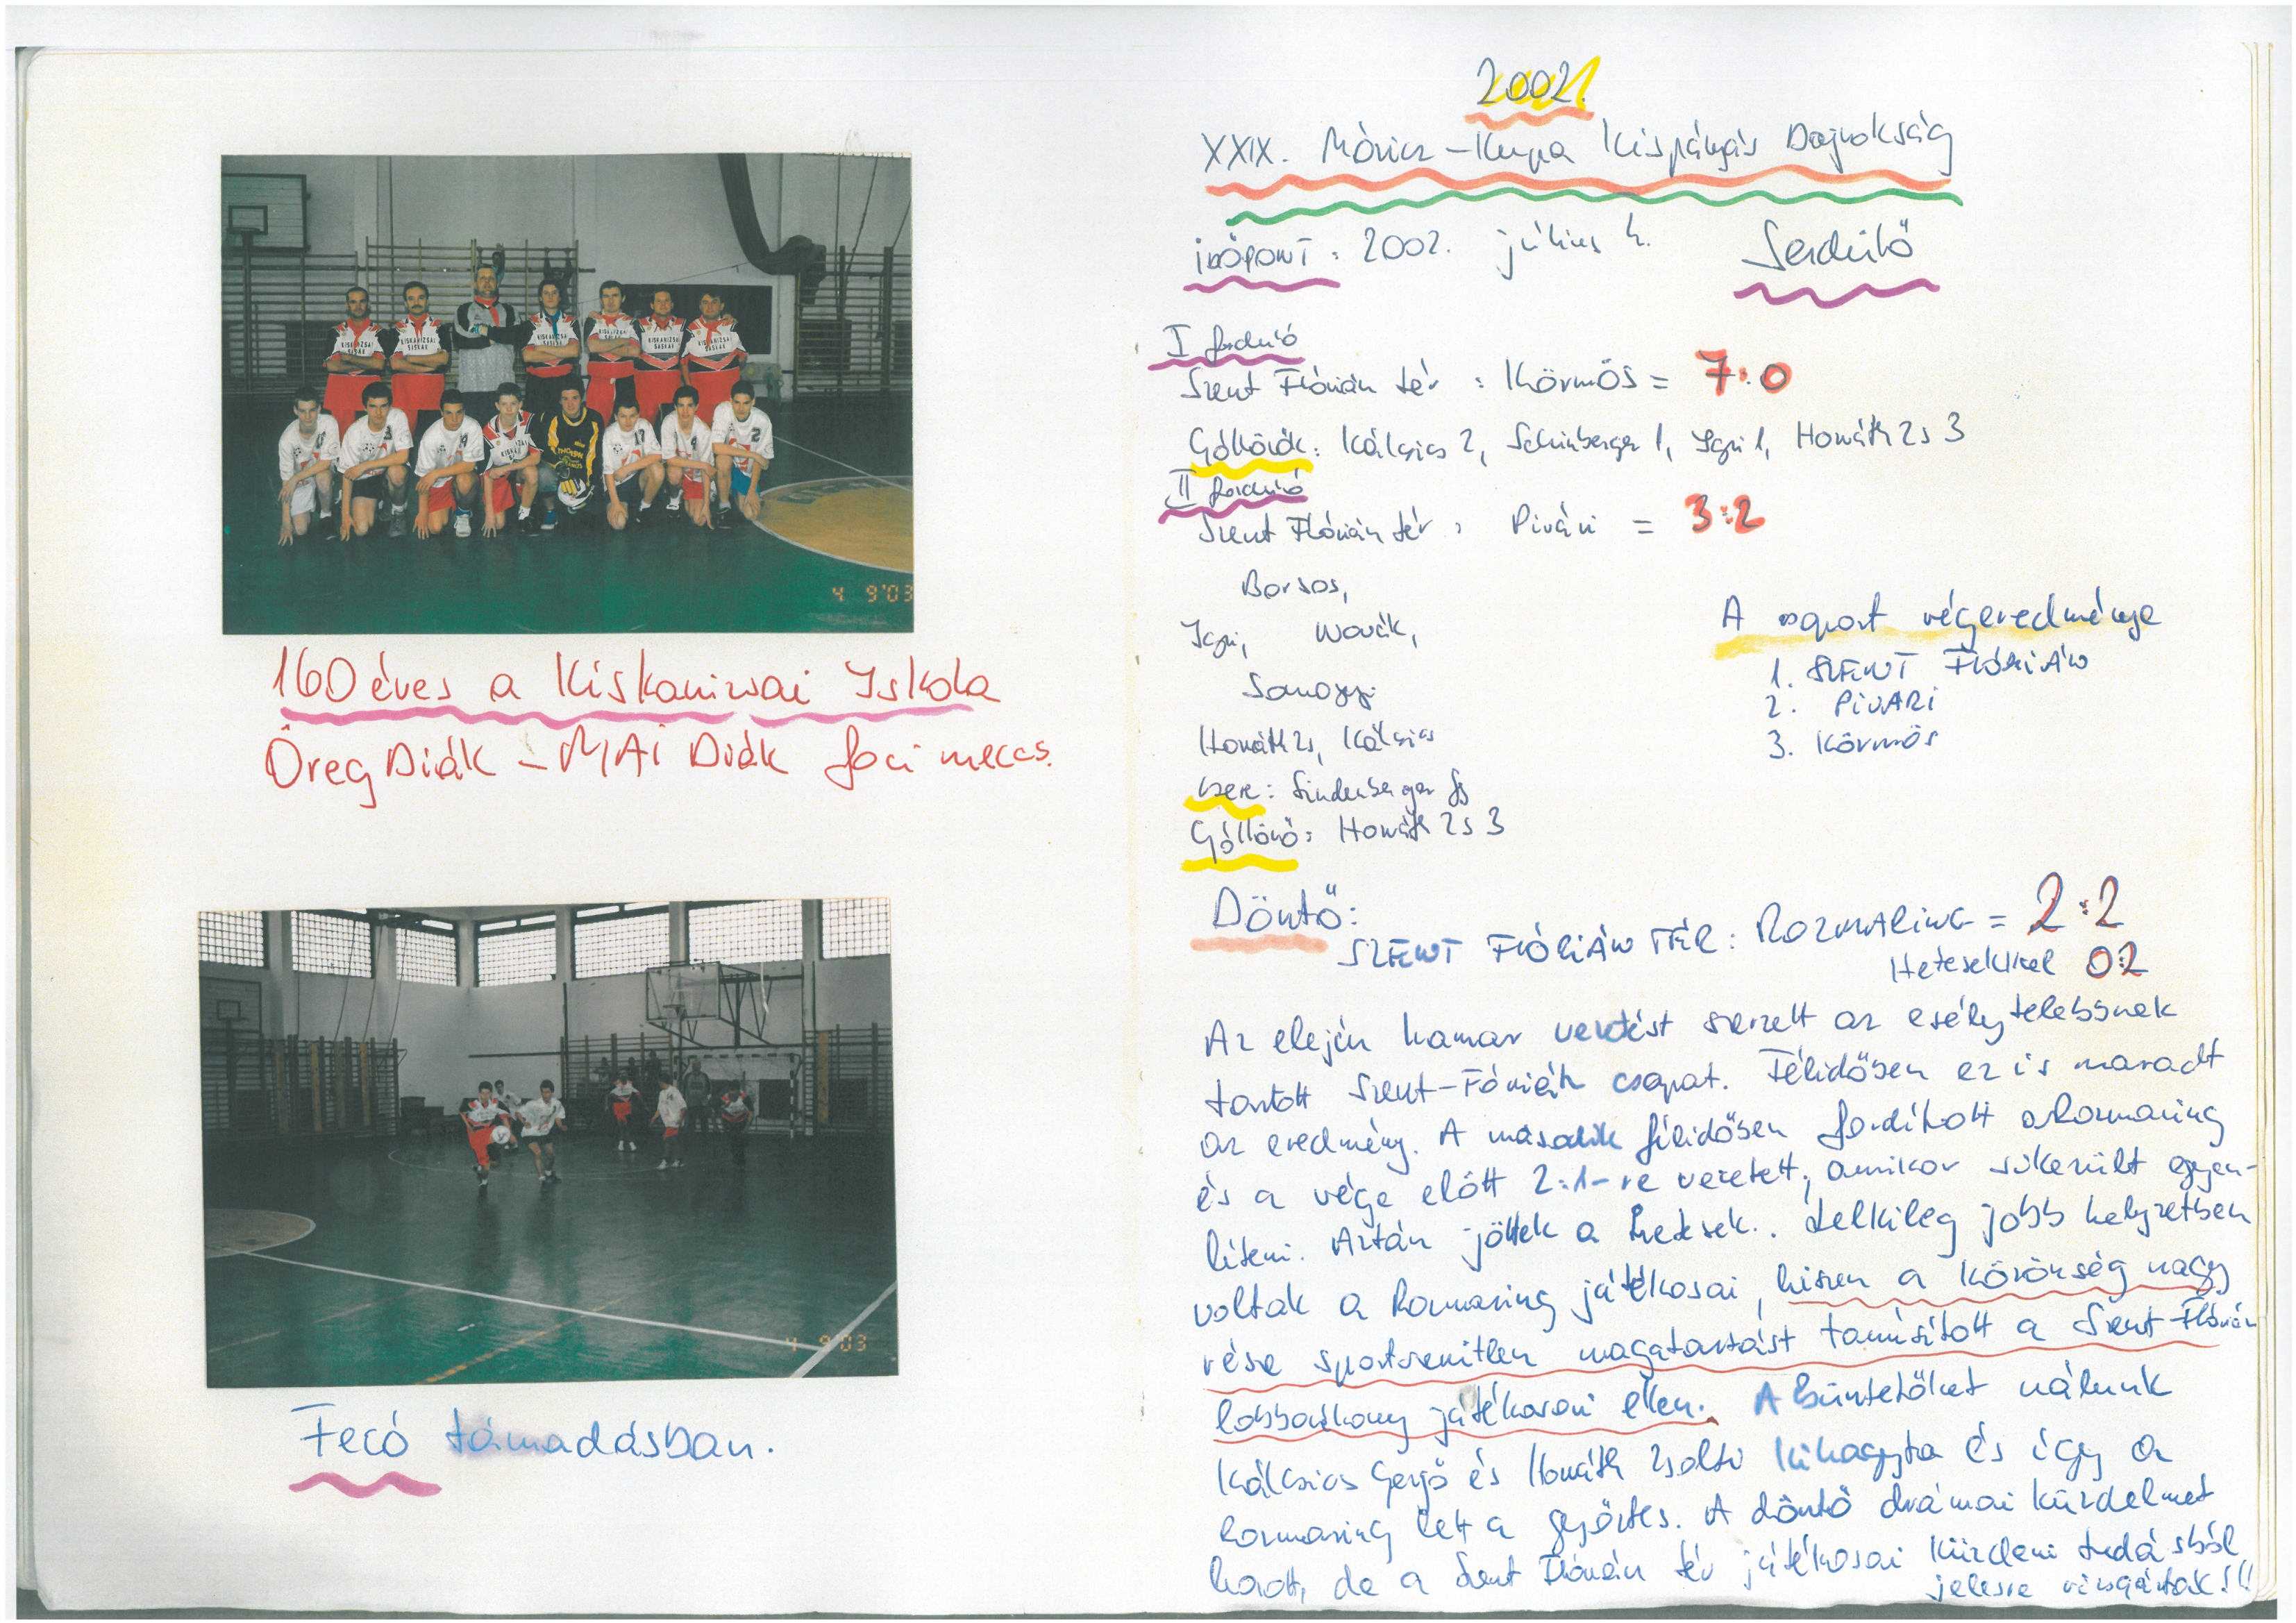 KISKANIZSAI
SÁSKÁK
4 9'03
160 éves a Kiskanizsai Iskola
Öreg Diák - MAI Diák foci meccs.
4 9'03
Fecó támadásban.
2002.
XXIX. Móricz-Kupa Kispályás Bajnokság
IDŐPONT: 2002. július 4. Serdülő
I forduló
Szent Flórián tér : Körmös = 7:0
Góllövők: Kálcsics 2, 1, Igri 1, Horváth Zs 3
II forduló
Szent Flórián tér : Pivári = 3:2
Borsos,
Igri, Novák,
Somogyi
Horváth Zs, Kálcsics
csere:
Góllövő: Horváth Zs 3
A csoport végeredménye
1. SZENT FLÓRIÁN
2. PIVARI
3. Körmös
Döntő:
SZENT FLÓRIÁN TÉR : ROZMARING = 2:2
Hetesekkel 0:2
Az elején hamar vezetést szerzett az esélytelebbnek
tartott Szent-Fórián csapat. Félidőben ez is maradt
az eredmény. A második félidőben fordított a Rozmaring
és a vége előtt 2:1-re vezetett, amikor sikerült egyen-
líteni. Aztán jöttek a hetesek.. Lelkileg jobb helyzetben
voltak a Rozmaring játékosai, hiszen a közönség nagy
része sportszerűtlen magatartást tanúsított a Szent-Flórián
lobbarkony játékosai ellen. A büntetőket nálunk
Kálcsics Gergő és Horváth Zsolti kihagyta és így a
Rozmaring lett a győztes. A döntő drámai küzdelmet
hozott, de a Szent Flórián tér játékosai küzdeni tudásból
jelesre vizsgáztak!!!